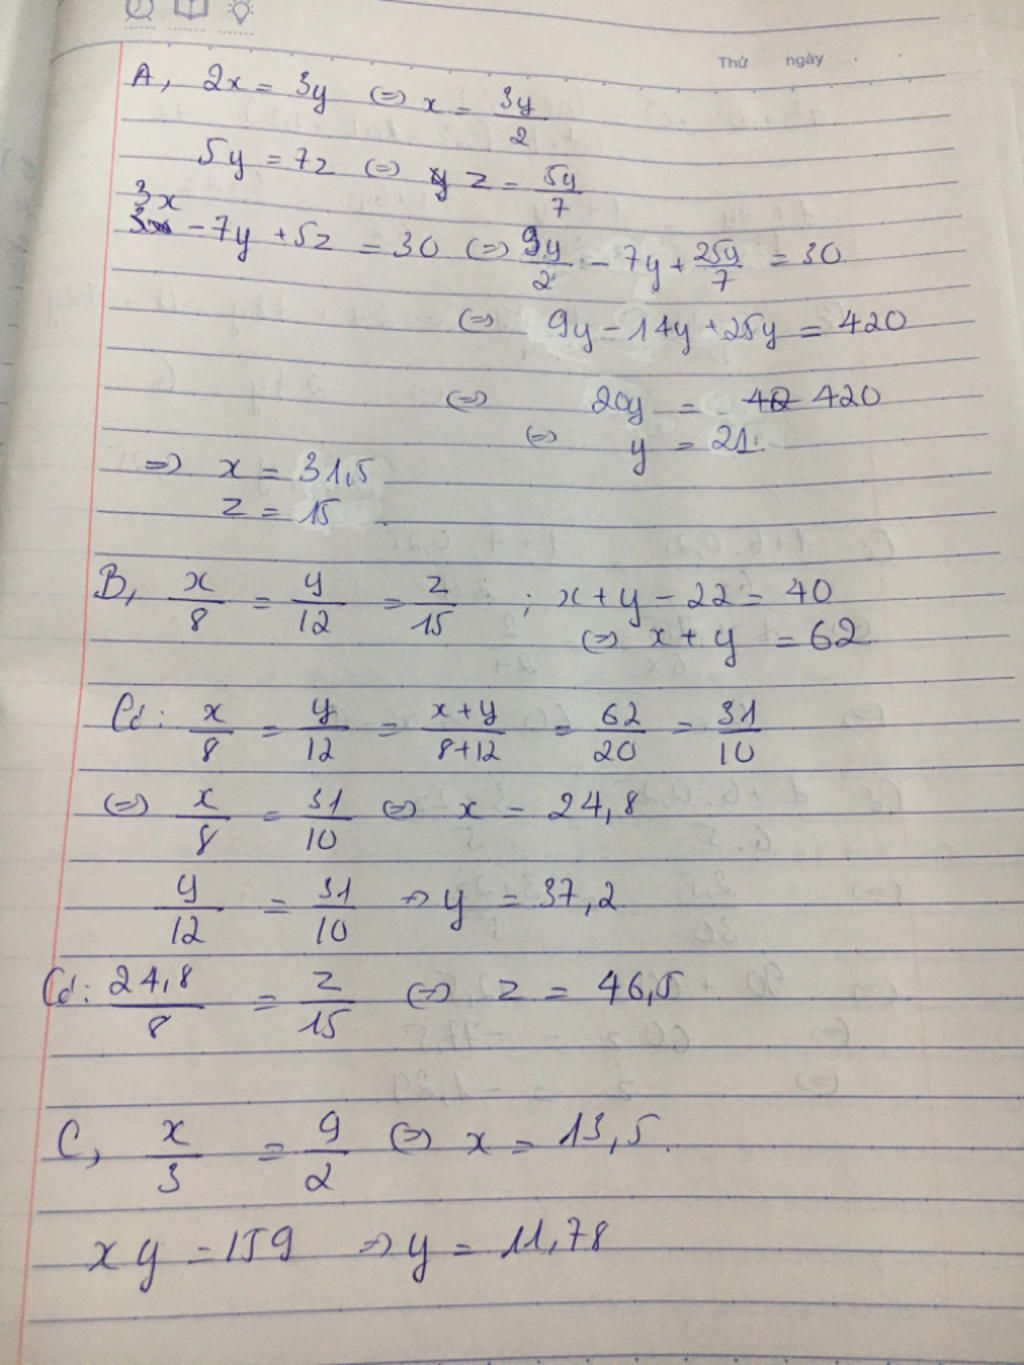 Thứ ngày
A, 2x = 3y (=) x = 3y/2
5y = 7z (=) z = 5y/7
3x
- 7y + 5z = 30 (=) 9y/2 - 7y + 25y/7 = 30
(=) 9y - 14y + 25y = 420
(=) 20y = 420
(=) y = 21.
=) x = 31,5
z = 15
B, x/8 = y/12 = z/15 ; x + y - 22 = 40
(=) x + y = 62
Có: x/8 = y/12 = x+y/8+12 = 62/20 = 31/10
(=) x/8 = 31/10 (=) x = 24,8
y/12 = 31/10 => y = 37,2
Có: 24,8/8 = z/15 (=) z = 46,5
C, x/3 = 9/2 (=) x = 13,5.
xy = 159 => y = 11,78